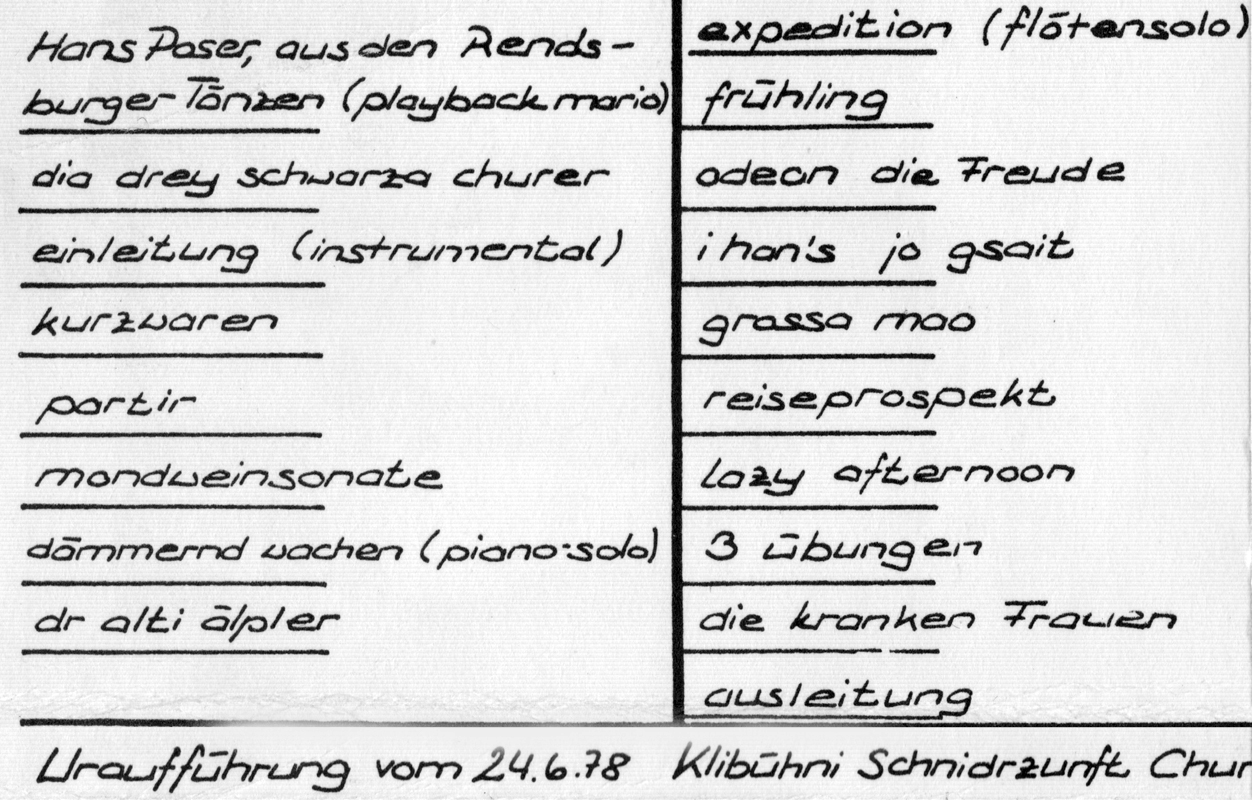 Hans Poser, aus den Rends-
burger Tänzen (playback mario)
dia drey schwarza churer
einleitung (instrumental)
kurzwaren
partir
mondweinsonate
dämmernd wachen (piano-solo)
dr alti älpler
expedition (flötensolo)
frühling
odeon die Freude
i han's jo gsait
grossa mao
reiseprospekt
lazy afternoon
3 übungen
die kranken Frauen
ausleitung
Uraufführung vom 24.6.78 Klibühni Schnidrzunft Chur